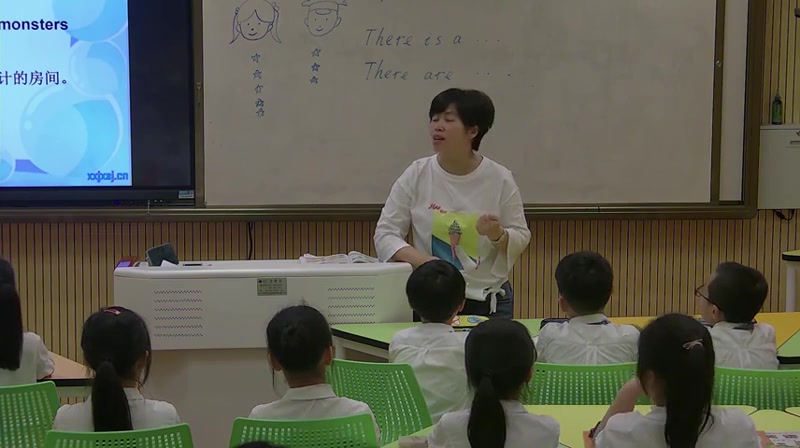 monsters
计的房间。
xxjxsj.cn
There is a ...
There are ....